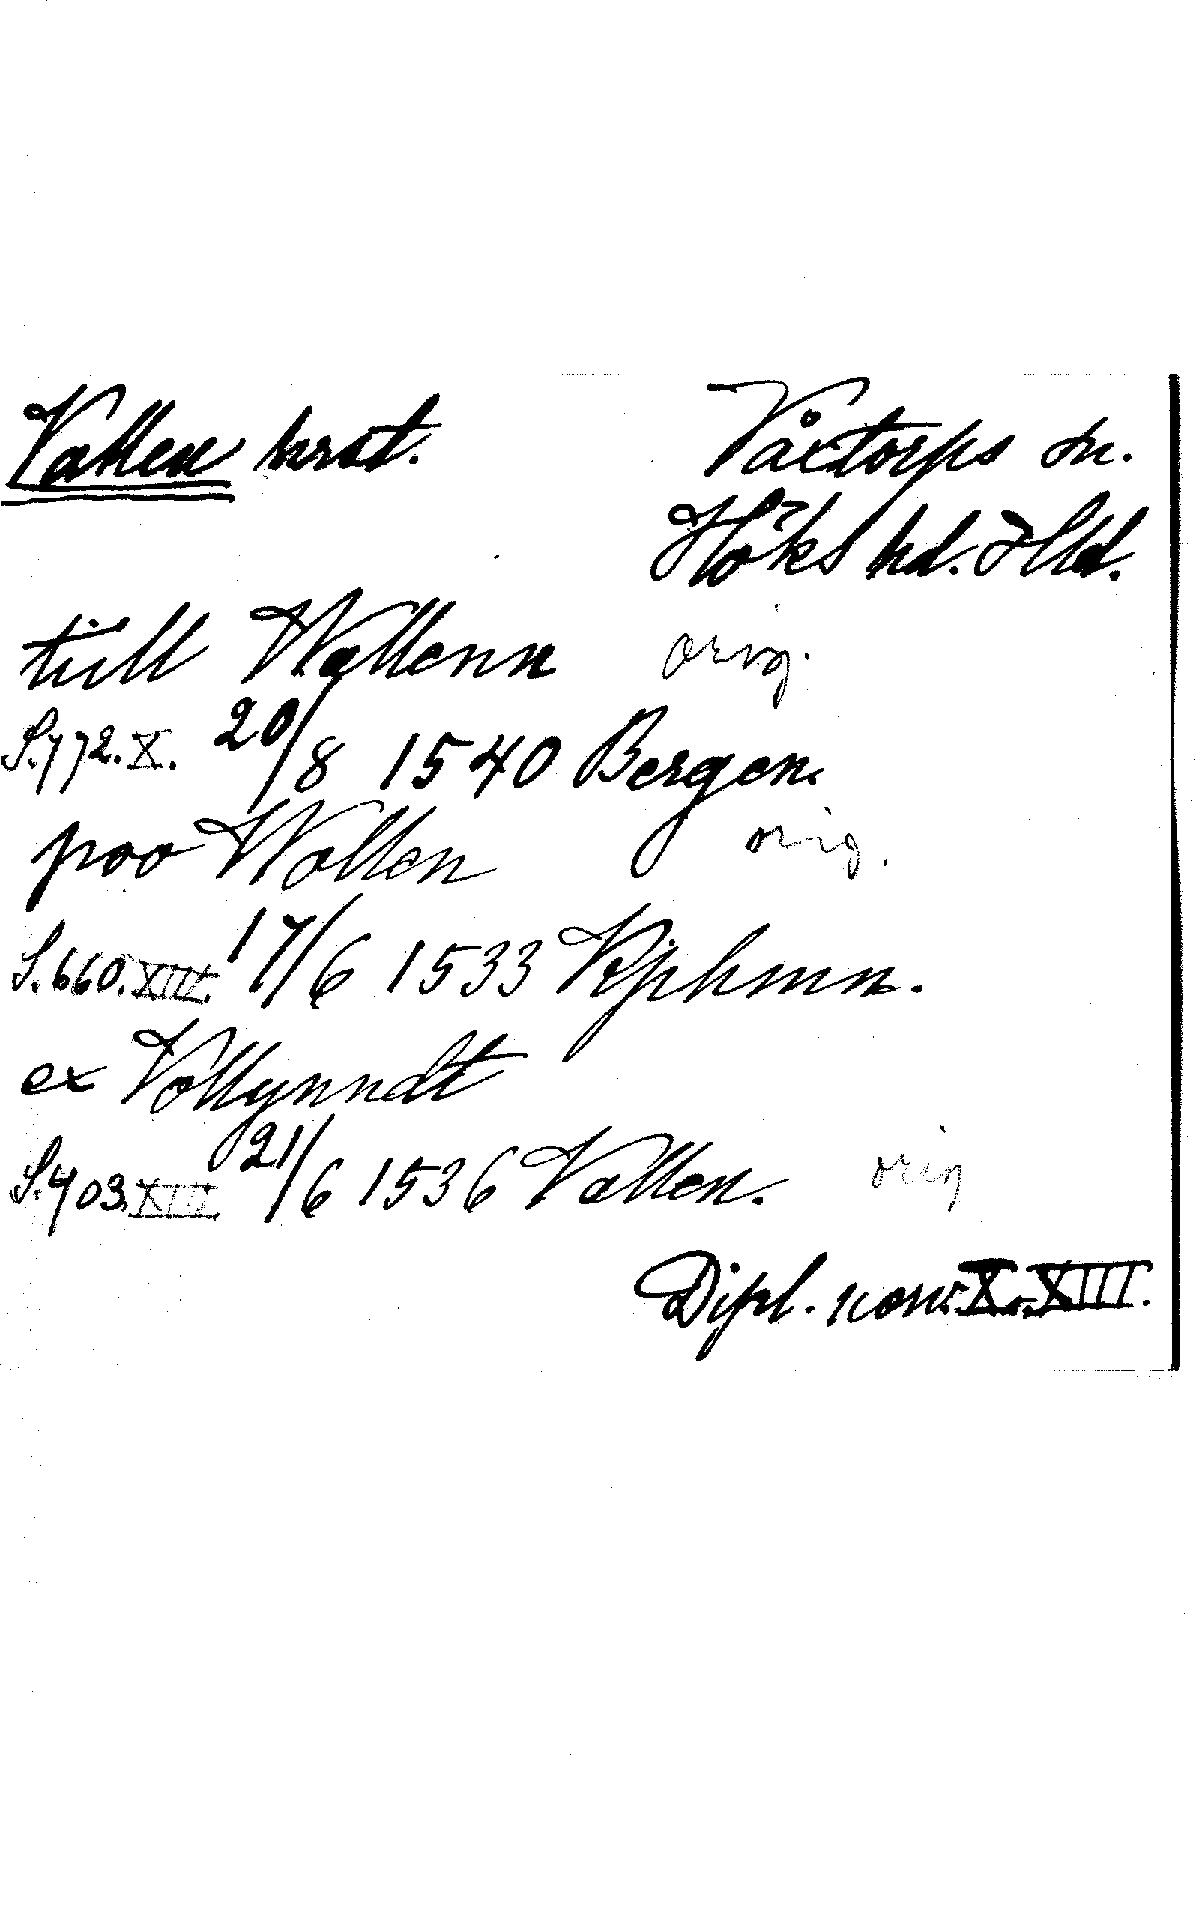 Vallen hrst. Våxtorps sn.
Höks hd. Hld.
till Wallenn orig.
S.772.X. 20/8 1540 Bergen.
poo Wallen orig.
S.660.XIII. 17/6 1533 Kjphmn.
ex Vallynndt
S.703.XIII. 21/6 1536 Vallen. orig
Dipl. norv. X. o. XIII.